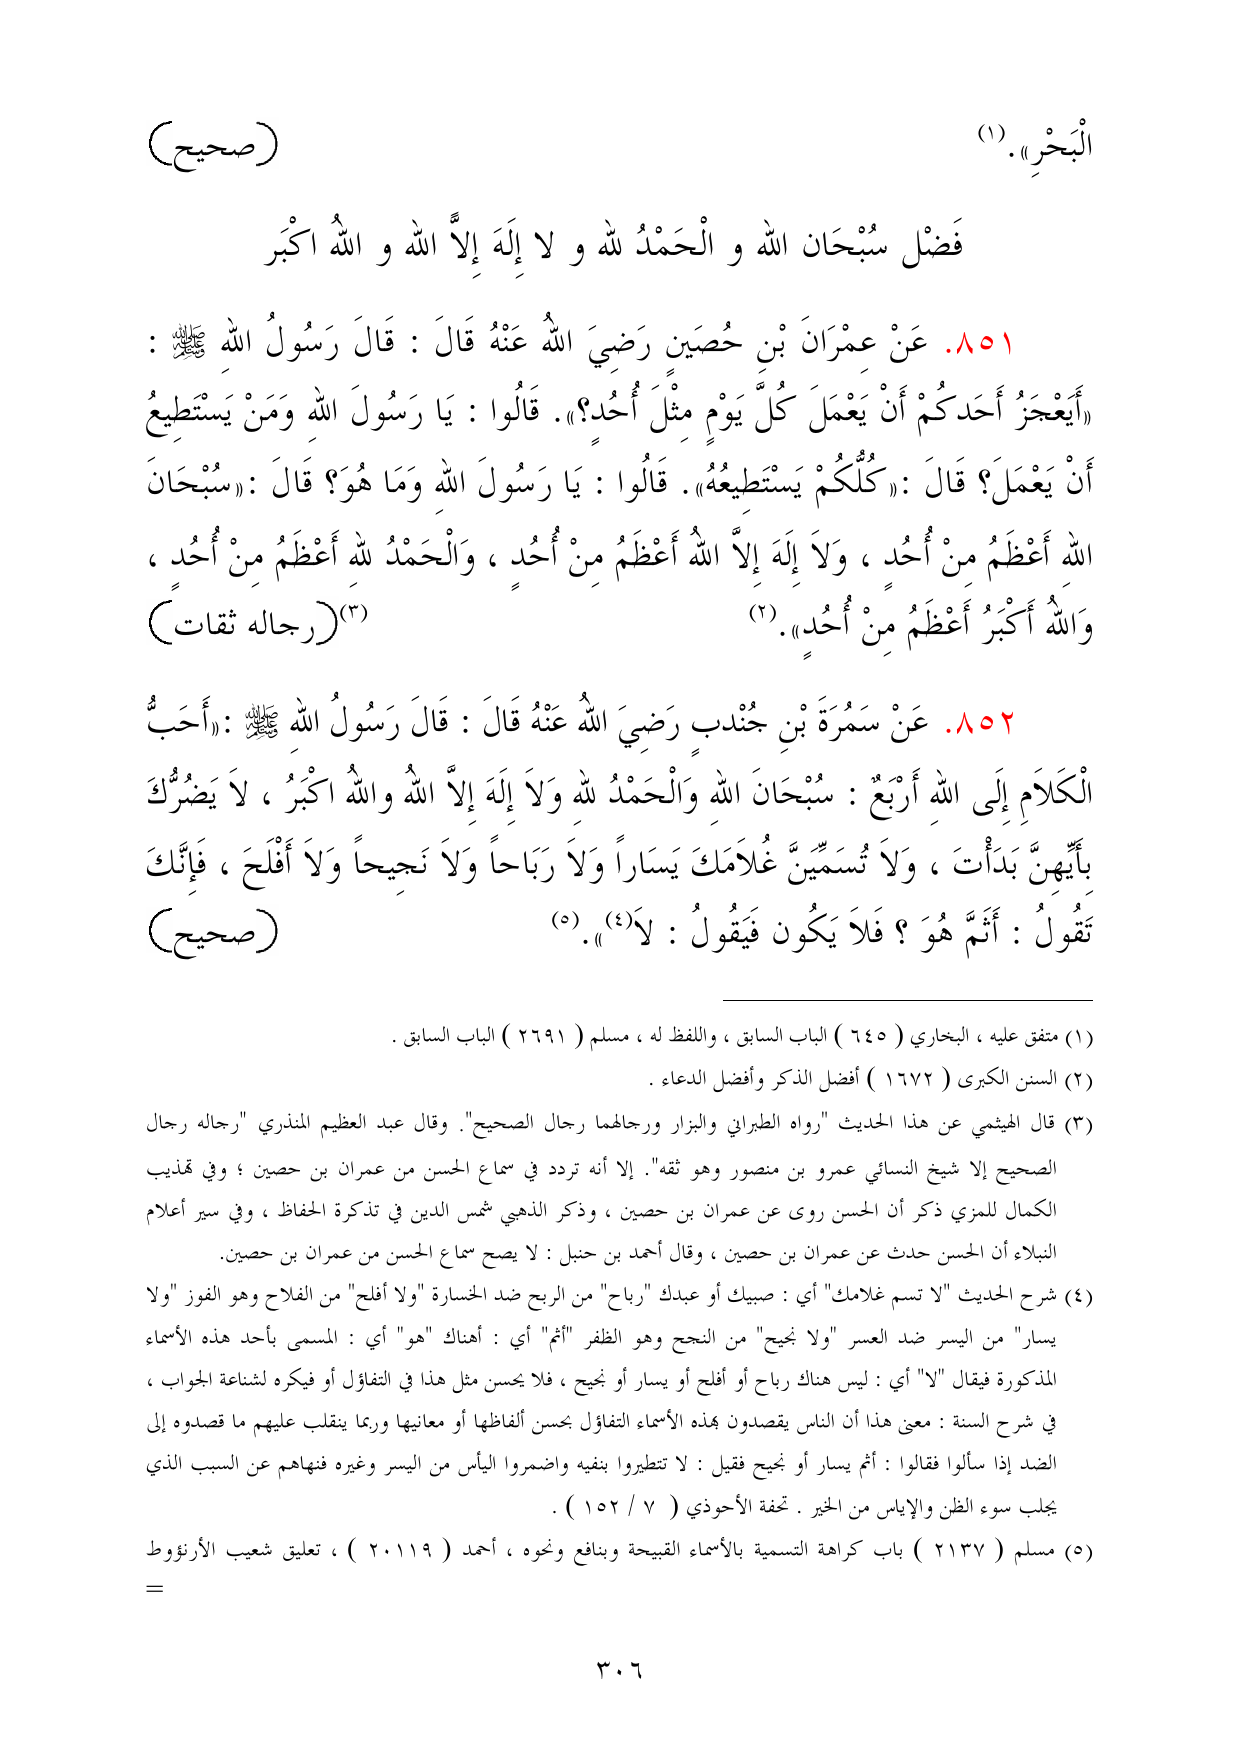 الْبَحْرِ». (١) (صحيح)
فَضْل سُبْحَان الله و الْحَمْدُ لله و لا إِلَهَ إِلاَّ الله و اللهُ اكْبَر
٨٥١. عَنْ عِمْرَانَ بْنِ حُصَينٍ رَضِيَ اللهُ عَنْهُ قَالَ : قَالَ رَسُولُ اللهِ ﷺ :
«أَيَعْجَزُ أَحَدكُمْ أَنْ يَعْمَلَ كُلَّ يَوْمٍ مِثْلَ أُحُدٍ؟». قَالُوا : يَا رَسُولَ اللهِ وَمَنْ يَسْتَطِيعُ
أَنْ يَعْمَلَ؟ قَالَ :«كُلُّكُمْ يَسْتَطِيعُهُ». قَالُوا : يَا رَسُولَ اللهِ وَمَا هُوَ؟ قَالَ :«سُبْحَانَ
اللهِ أَعْظَمُ مِنْ أُحُدٍ ، وَلاَ إِلَهَ إِلاَّ اللهُ أَعْظَمُ مِنْ أُحُدٍ ، وَالْحَمْدُ للهِ أَعْظَمُ مِنْ أُحُدٍ ،
وَاللهُ أَكْبَرُ أَعْظَمُ مِنْ أُحُدٍ». (٢) (رجاله ثقات)(٣)
٨٥٢. عَنْ سَمُرَةَ بْنِ جُنْدبٍ رَضِيَ اللهُ عَنْهُ قَالَ : قَالَ رَسُولُ اللهِ ﷺ :«أَحَبُّ
الْكَلاَمِ إِلَى اللهِ أَرْبَعٌ : سُبْحَانَ اللهِ وَالْحَمْدُ للهِ وَلاَ إِلَهَ إِلاَّ اللهُ واللهُ اكْبَرُ ، لاَ يَضُرُّكَ
بِأَيِّهِنَّ بَدَأْتَ ، وَلاَ تُسَمِّيَنَّ غُلاَمَكَ يَسَاراً وَلاَ رَبَاحاً وَلاَ نَجِيحاً وَلاَ أَفْلَحَ ، فَإِنَّكَ
تَقُولُ : أَثَمَّ هُوَ ؟ فَلاَ يَكُون فَيَقُولُ : لاَ(٤)». (٥) (صحيح)
(١) متفق عليه ، البخاري ( ٦٤٥ ) الباب السابق ، واللفظ له ، مسلم ( ٢٦٩١ ) الباب السابق .
(٢) السنن الكبرى ( ١٦٧٢ ) أفضل الذكر وأفضل الدعاء .
(٣) قال الهيثمي عن هذا الحديث "رواه الطبراني والبزار ورجالهما رجال الصحيح". وقال عبد العظيم المنذري "رجاله رجال
الصحيح إلا شيخ النسائي عمرو بن منصور وهو ثقه". إلا أنه تردد في سماع الحسن من عمران بن حصين ؛ وفي تهذيب
الكمال للمزي ذكر أن الحسن روى عن عمران بن حصين ، وذكر الذهبي شمس الدين في تذكرة الحفاظ ، وفي سير أعلام
النبلاء أن الحسن حدث عن عمران بن حصين ، وقال أحمد بن حنبل : لا يصح سماع الحسن من عمران بن حصين.
(٤) شرح الحديث "لا تسم غلامك" أي : صبيك أو عبدك "رباح" من الربح ضد الخسارة "ولا أفلح" من الفلاح وهو الفوز "ولا
يسار" من اليسر ضد العسر "ولا نجيح" من النجح وهو الظفر "أثم" أي : أهناك "هو" أي : المسمى بأحد هذه الأسماء
المذكورة فيقال "لا" أي : ليس هناك رباح أو أفلح أو يسار أو نجيح ، فلا يحسن مثل هذا في التفاؤل أو فيكره لشناعة الجواب ،
في شرح السنة : معنى هذا أن الناس يقصدون بهذه الأسماء التفاؤل بحسن ألفاظها أو معانيها وربما ينقلب عليهم ما قصدوه إلى
الضد إذا سألوا فقالوا : أثم يسار أو نجيح فقيل : لا تتطيروا بنفيه واضمروا اليأس من اليسر وغيره فنهاهم عن السبب الذي
يجلب سوء الظن والإياس من الخير . تحفة الأحوذي ( ٧ / ١٥٢ ) .
(٥) مسلم ( ٢١٣٧ ) باب كراهة التسمية بالأسماء القبيحة وبنافع ونحوه ، أحمد ( ٢٠١١٩ ) ، تعليق شعيب الأرنؤوط
=
٣٠٦